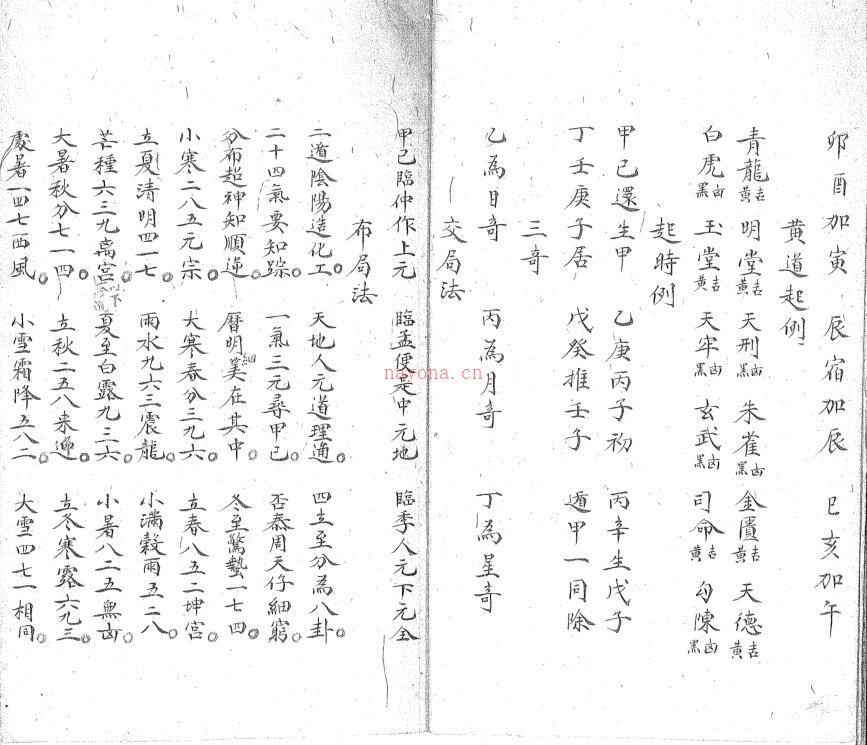 卯酉加寅 辰宿加辰 巳亥加午
黃道起例
青龍吉黃 明堂吉黃 天刑凶黑 朱雀凶黑 金匱吉黃 天德吉黃
白虎凶黑 玉堂吉黃 天牢凶黑 玄武凶黑 司命吉黃 勾陳凶黑
起時例
甲己還生甲 乙庚丙子初 丙辛生戊子
丁壬庚子居 戊癸推壬子 遁甲一同除
三奇
乙為日奇 丙為月奇 丁為星奇
交局法
甲己臨仲作上元 臨孟便是中元地 臨季人元下元全
布局法
二遁陰陽造化工 天地人元道理通 四立至分為八卦
二十四氣要知踪 一氣三元尋甲己 否泰周天仔細窮
分布超神知順逆 曆明細美在其中 冬至驚蟄一七四
小寒二八五元宗 大寒春分三九六 立春八五二坤宮
立夏清明四一七 雨水九六三震龍 小滿穀雨五二八
芒種六三九离宮 以下 夏至白露九三六 小暑八二五無凶
大暑秋分七一四 立秋二五八来逢 立冬寒露六九三
處暑一四七西風 小雪霜降五八二 大雪四七一相同
nayona.cn